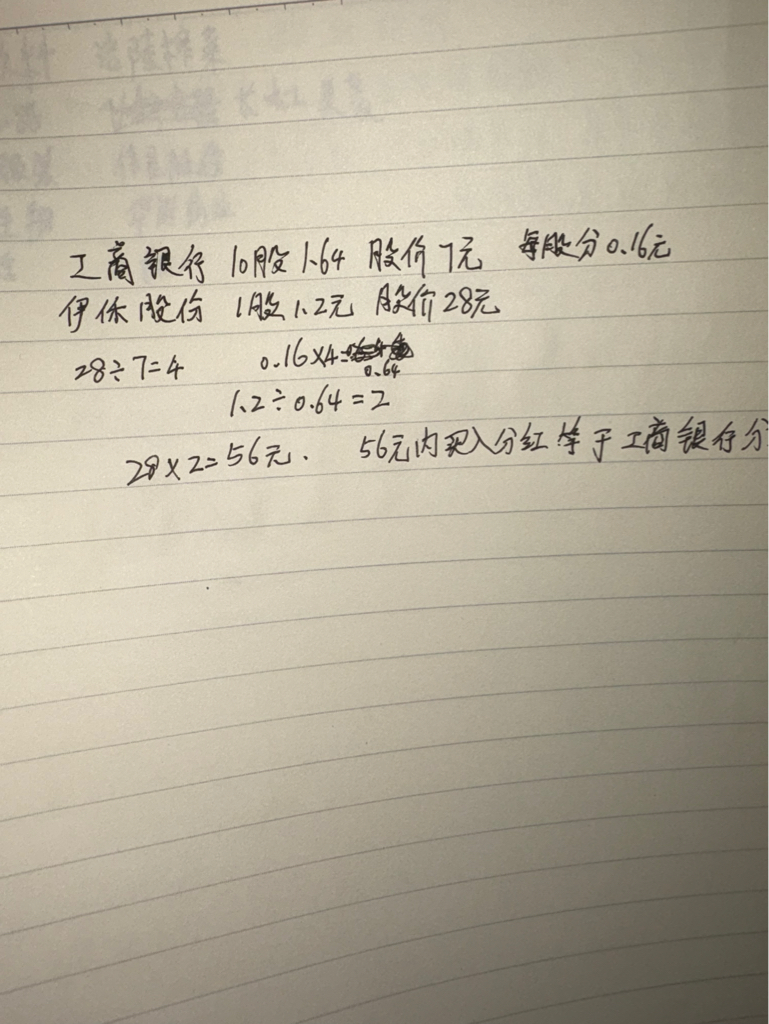 工商银行 10股1.64 股价7元 每股分0.16元
伊休股份 1股1.2元 股价28元
28÷7=4 0.16×4=0.64
1.2÷0.64=2
28×2=56元. 56元内买入分红等于工商银行分